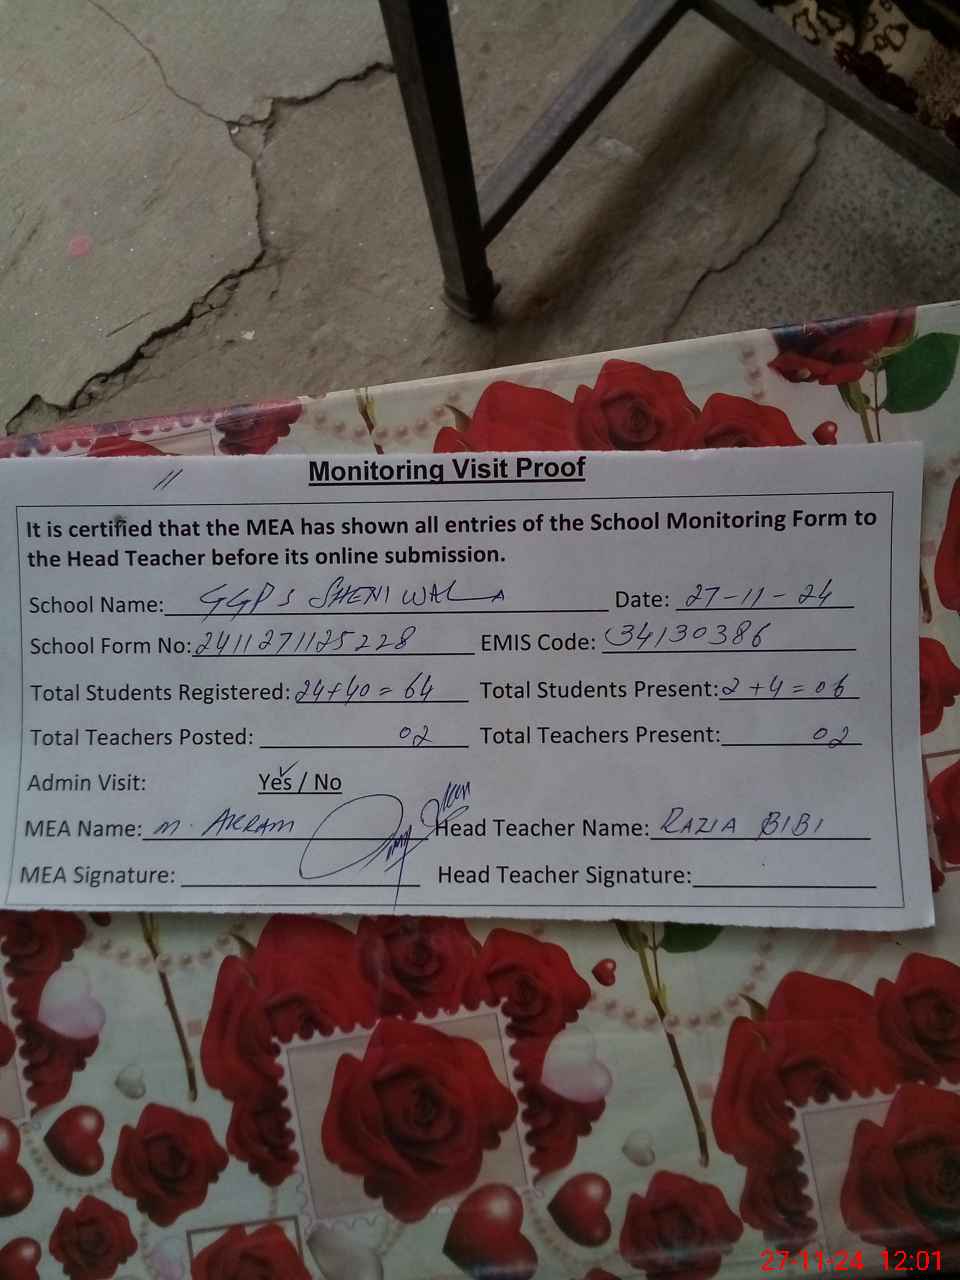 Monitoring Visit Proof
It is certified that the MEA has shown all entries of the School Monitoring Form to
the Head Teacher before its online submission.
School Name: GGPS SHENIWALA Date: 27-11-24
School Form No: 2411271125228 EMIS Code: 34130386
Total Students Registered: 24+40=64 Total Students Present: 2+4=06
Total Teachers Posted: 02 Total Teachers Present: 02
Admin Visit: Yes / No
MEA Name: M. AKRAM Head Teacher Name: RAZIA BIBI
MEA Signature: Head Teacher Signature:
27-11-24 12:01